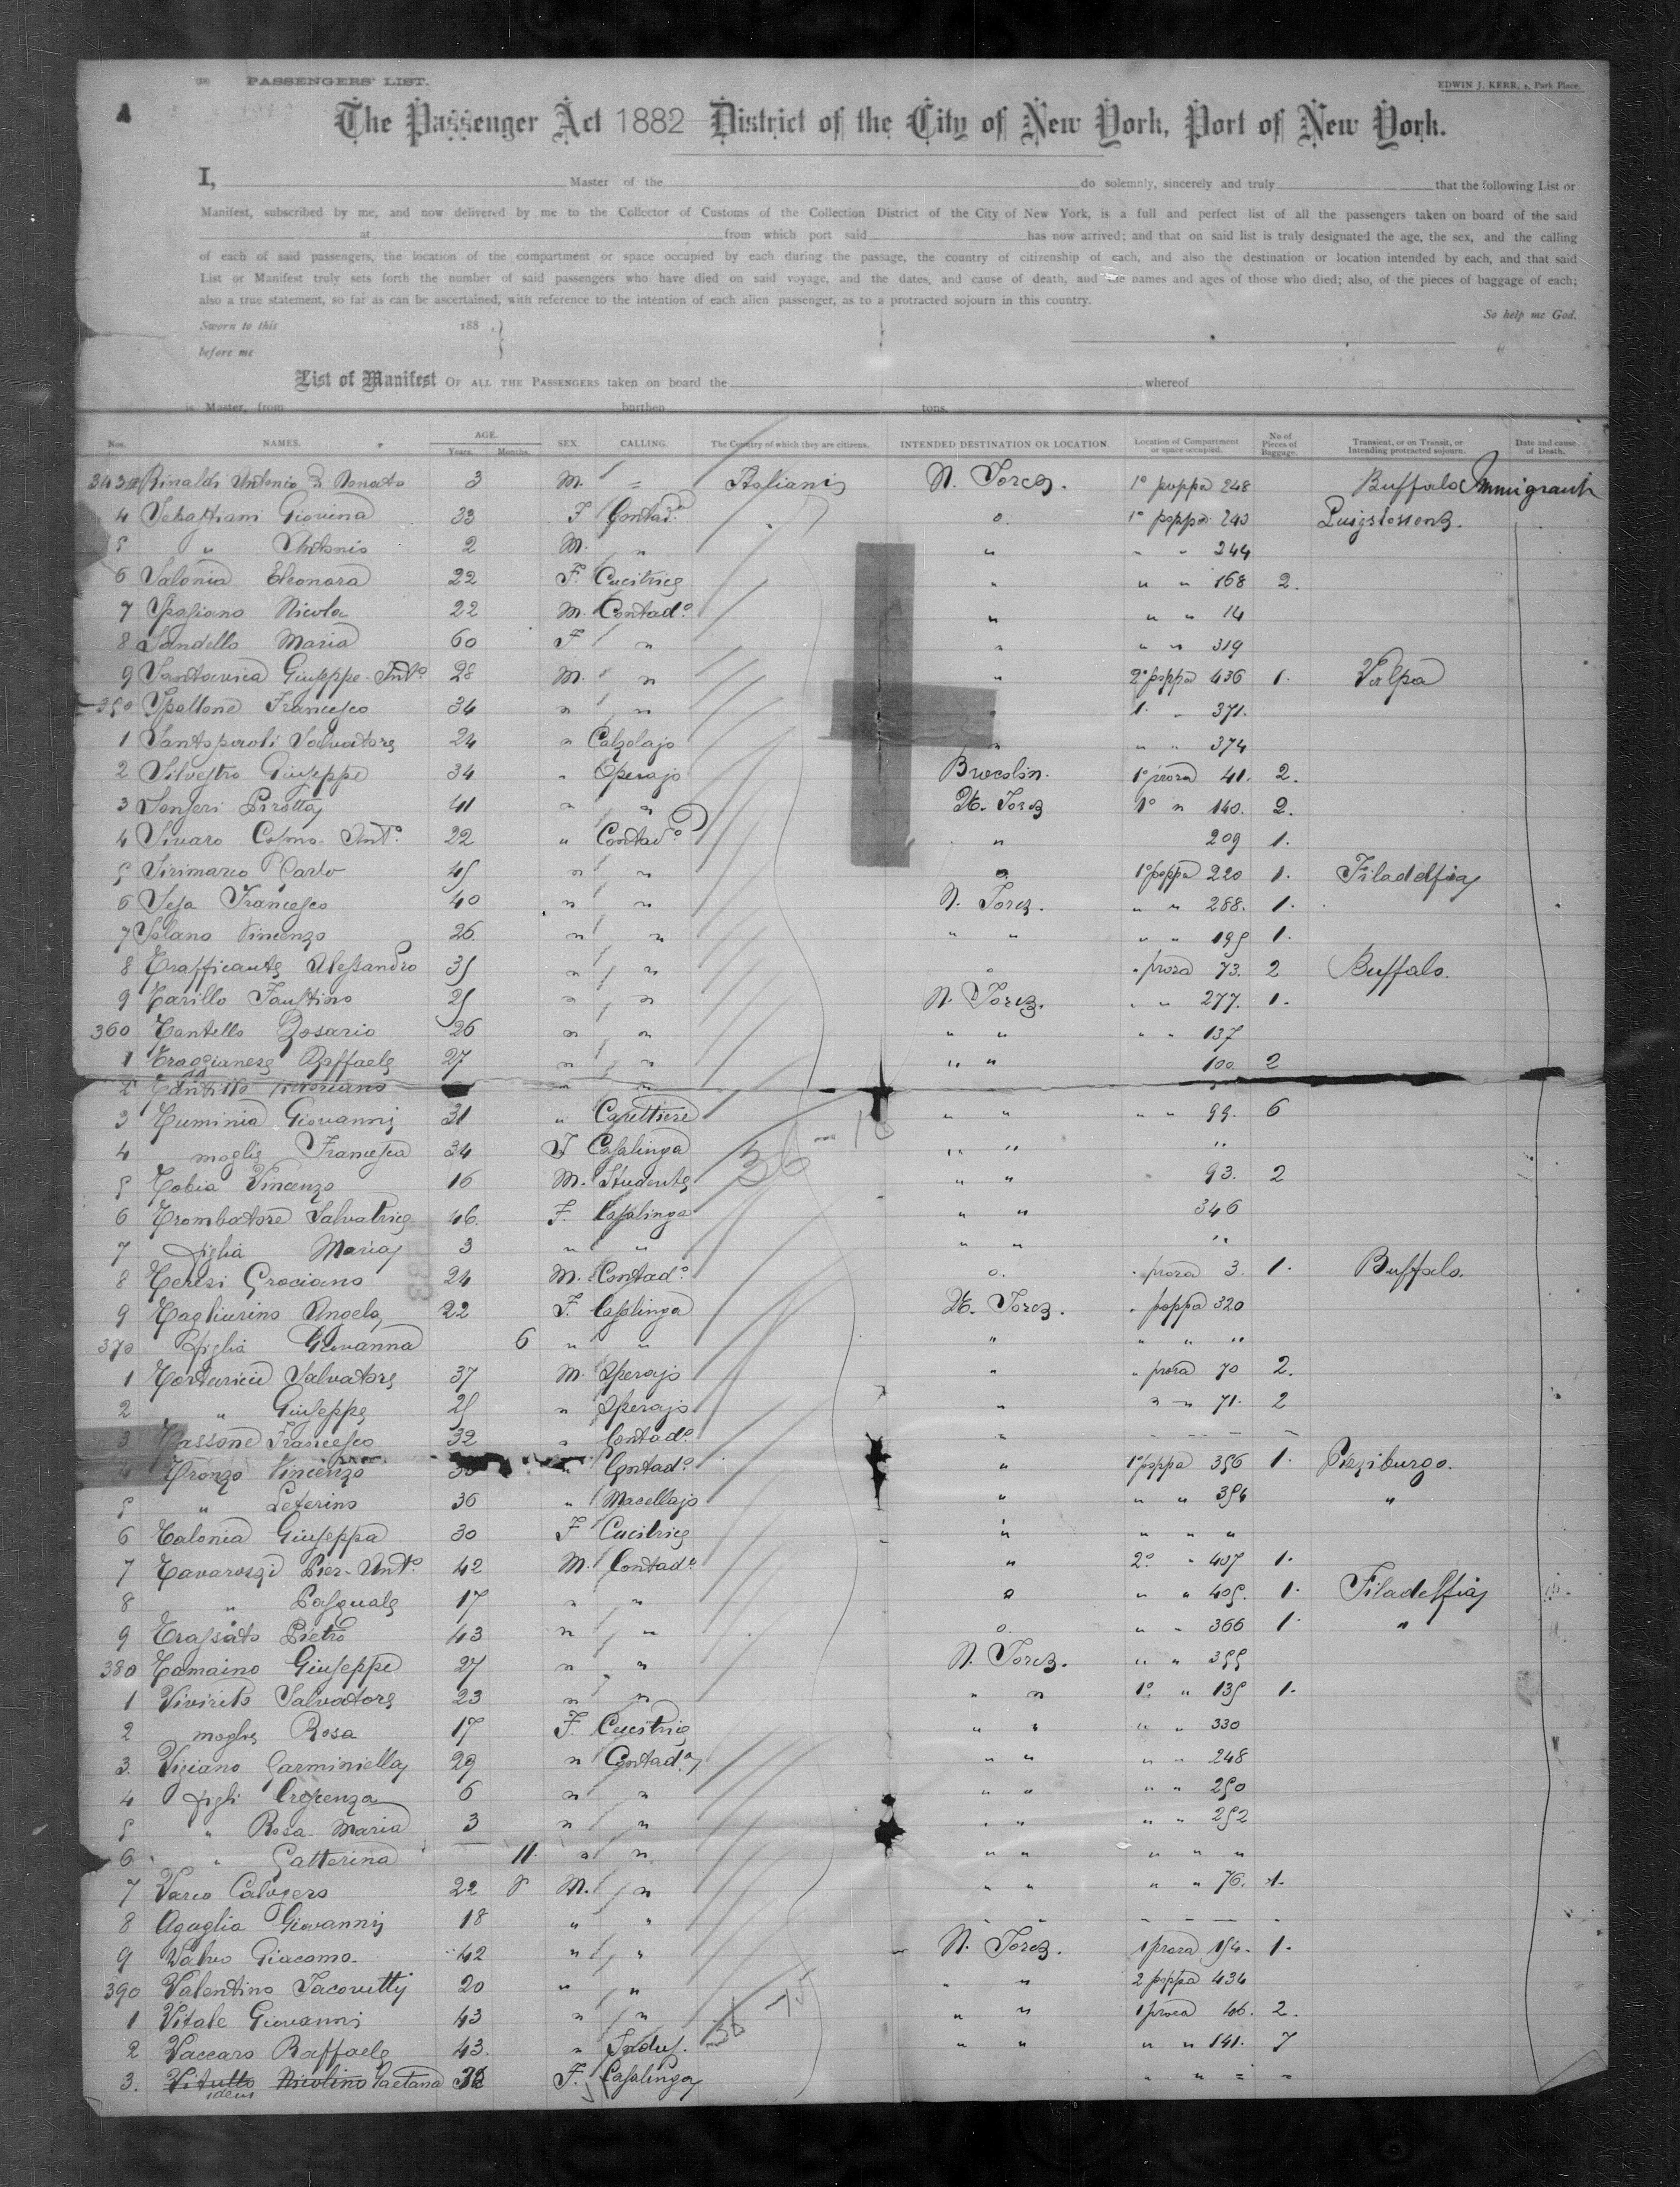 PASSENGERS' LIST.
EDWIN J. KERR, Park Place.
The Passenger Act 1882 District of the City of New York, Port of New York.
I, Master of the do solemnly, sincerely and truly that the following List or
Manifest, subscribed by me, and now delivered by me to the Collector of Customs of the Collection District of the City of New York, is a full and perfect list of all the passengers taken on board of the said
at from which port said has now arrived; and that on said list is truly designated the age, the sex, and the calling
of each of said passengers, the location of the compartment or space occupied by each during the passage, the country of citizenship of each, and also the destination or location intended by each, and that said
List or Manifest truly sets forth the number of said passengers who have died on said voyage, and the dates, and cause of death, and the names and ages of those who died; also, of the pieces of baggage of each;
also a true statement, so far as can be ascertained, with reference to the intention of each alien passenger, as to a protracted sojourn in this country.
Sworn to this 188 So help me God.
before me
List of Manifest OF ALL THE PASSENGERS taken on board the whereof
is Master, from burthen tons.
Nos. NAMES. AGE. Years. Months. SEX. CALLING. The Country of which they are citizens. INTENDED DESTINATION OR LOCATION. Location of Compartment or space occupied. No of Pieces of Baggage. Transient, or on Transit, or Intending protracted sojourn. Date and cause of Death.
343 Rinaldi Antonio di Donato 3 M. " Italiani N. Jorck. 1° poppa 248 Buffalo Immigrant
4 Sebastiani Giovina 33 F Contad.a o. 1° poppa 243
5 " Antonio 2 M. " " " " 244
6 Salonia Eleonora 22 F. Cucitrice " " " 168 2.
7 Nicola 22 M. Contad.o " " " 14
8 Sandella Maria 60 F " " " " 319
9 Giuseppe Ant.o 28 M. " " 2° poppa 436 1.
350 Spallone Francesco 34 " " 1. " 371.
1 Salvatore 24 " Calzolajo " " " 374
2 Silvestro Giuseppe 34 " Operajo Brocolin. 1° prora 41. 2.
3 41 " " N. Jorck 1° " 140. 2.
4 Sivaro Cosmo Ant.o 22 " Contad.o " 209 1.
5 Sirimarco Carlo 45 " " o. 1° poppa 220 1. Filadelfia
6 Sesa Francesco 40 " " N. Jorck. " " 288. 1.
7 Solano Vincenzo 26. " " " " " " 195 1.
8 Trafficante Alessandro 35 " " o " prora 73. 2 Buffalo.
9 Tarillo Faustino 25 " " N. Jorck. " " 277. 1.
360 Tantello Rosario 26 " " " " " " 137
1 Raffaele 27 " " " " 100 2
2 " "
3 Tuminia Giovanni 31 " " " " " 99. 6
4 moglie Francesca 34 F Casalinga " " "
5 Tobia Vincenzo 16 M. Studente " " 93. 2
6 Trombatore Salvatrice 46. F. Casalinga " " 346
7 figlia Maria 3 " " " " "
8 Teresi Graciano 24 M. Contad.o o. " prora 3. 1. Buffalo.
9 Tagliarino Angela 22 F. Casalinga N. Jorck. " poppa 320
370 figlia Giovanna 6 " " " " " "
1 Tortorici Salvatore 37 M. Operajo " " prora 70 2.
2 " Giuseppe 25 " Operajo " " " 71. 2
3 Tassone Francesco 32 " Contad.o " - - - -
4 Tronzo Vincenzo " Contad.o " 1° poppa 356 1. Pizziburgo.
5 " 36 " Macellajo " " " 354 "
6 Talonia Giuseppa 30 F Cucitrice " " " "
7 Tavarozzi Pier-Ant.o 42 M. Contad.o " 2° " 407 1.
8 " Pasquale 17 " " o " " 405. 1. Filadelfia
9 Trassato Pietro 43 " " o. " " 366 1. "
380 Tamaino Giuseppe 27 " " N. Jorck. " " 355
1 Vivirito Salvatore 23 " " " " 1° " 135 1.
2 moglie Rosa 17 F. Cucitrice " " " " 330
3. Viziano Carminiella 29 " Contad.a " " " " 248
4 figli Crescenza 6 " " " " " " 250
5 " Rosa Maria 3 " " " " " " 252
6 " Catterina 11. " " " " " " "
7 Varco Calogero 22 M. " " " " " 76. 1.
8 Aguglia Giovanni 18 " " - - - - - -
9 Salvo Giacomo. 42 " " N. Jorck. 1 prora 154. 1.
390 Valentino Jacovitti 20 " " " " 2 poppa 434
1 Vitale Giovanni 43 " " " " 1 prora 46. 2.
2 Vaccaro Raffaele 43. " Indus. " " " " 141. 7
3. Vitullo Nicolino Gaetana 32 F. Casalinga " " " "
idem